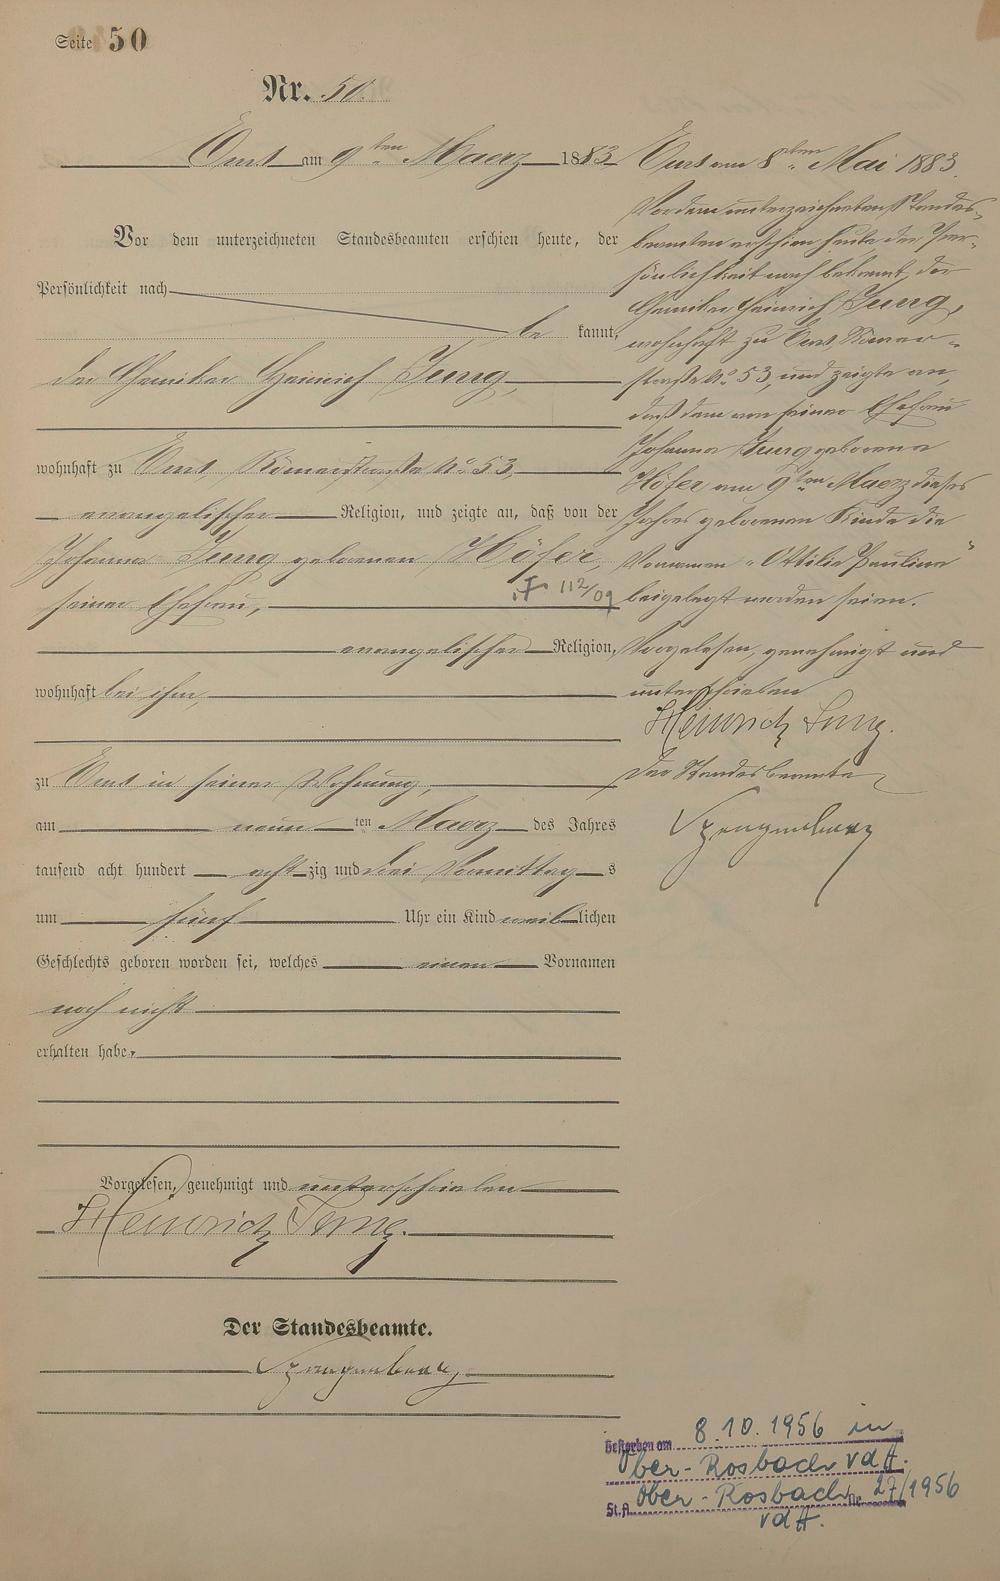 Seite 50
Nr. 50.
Ems am 9ten Maerz 1883
Vor dem unterzeichneten Standesbeamten erschien heute, der
Persönlichkeit nach
be kannt,
der Chemiker Heinrich Jung,
wohnhaft zu Ems, Römerstraße No 53,
evangelischer Religion, und zeigte an, daß von der
Johanna Jung geborenen Höfer,
seiner Ehefrau,
+ 112/09
evangelischer Religion,
wohnhaft bei ihm,
zu Ems in seiner Wohnung,
am neun ten Maerz des Jahres
tausend acht hundert acht zig und drei Vormittag s
um fünf Uhr ein Kind weib lichen
Geschlechts geboren worden sei, welches einen Vornamen
noch nicht
erhalten habe.
Vorgelesen, genehmigt und unterschrieben
Heinrich Jung.
Der Standesbeamte.
Ems am 8ten Mai 1883.
Vor dem unterzeichneten Standes-
beamten erschien heute, der Per-
sönlichkeit nach bekannt, der
Chemiker Heinrich Jung,
wohnhaft zu Ems Römer-
straße No 53, und zeigte an,
daß dem von seiner Ehefrau
Johanna Jung geborene
Höfer am 9ten Maerz dieses
Jahres geborenen Kinde die
Vornamen „Ottilie Pauline"
beigelegt worden seien.
Vorgelesen, genehmigt und
unterschrieben
Heinrich Jung.
Der Standesbeamte
Gestorben am 8.10.1956 in
Ober-Rosbach v d H.
St.A. Ober-Rosbach Nr. 27/1956
v d H.